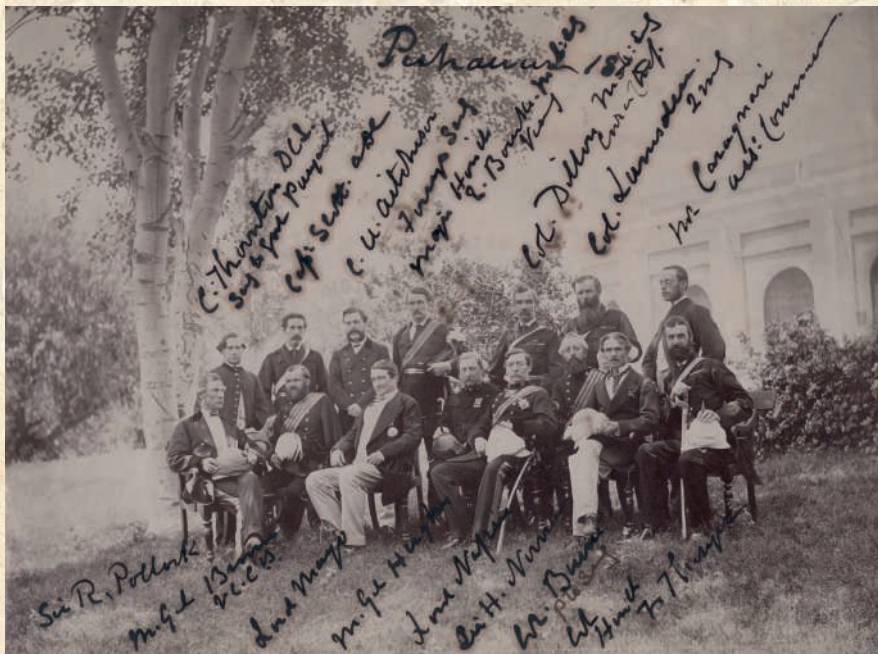 Peshawur 18
C. Thornton DCL
Secy to Govt Punjaub
Capt. Scott. ADC
C. U. Aitchison
Foreign Secy
Major Honble
E. Bourke Mil Secy
Viceroy
Col. Dillon Mil Sec
Col. Lumsden.
2 mg
Mr Cavagnari
Asst: Commissioner
Sir R. Pollock
M. Gel Brown
V.C. C.B.
Lord Mayo
M. Gel Haughton
Lord Napier
Sir H. Norman
Col. Burne
P. Secy
Col
Honble
F. Thesiger